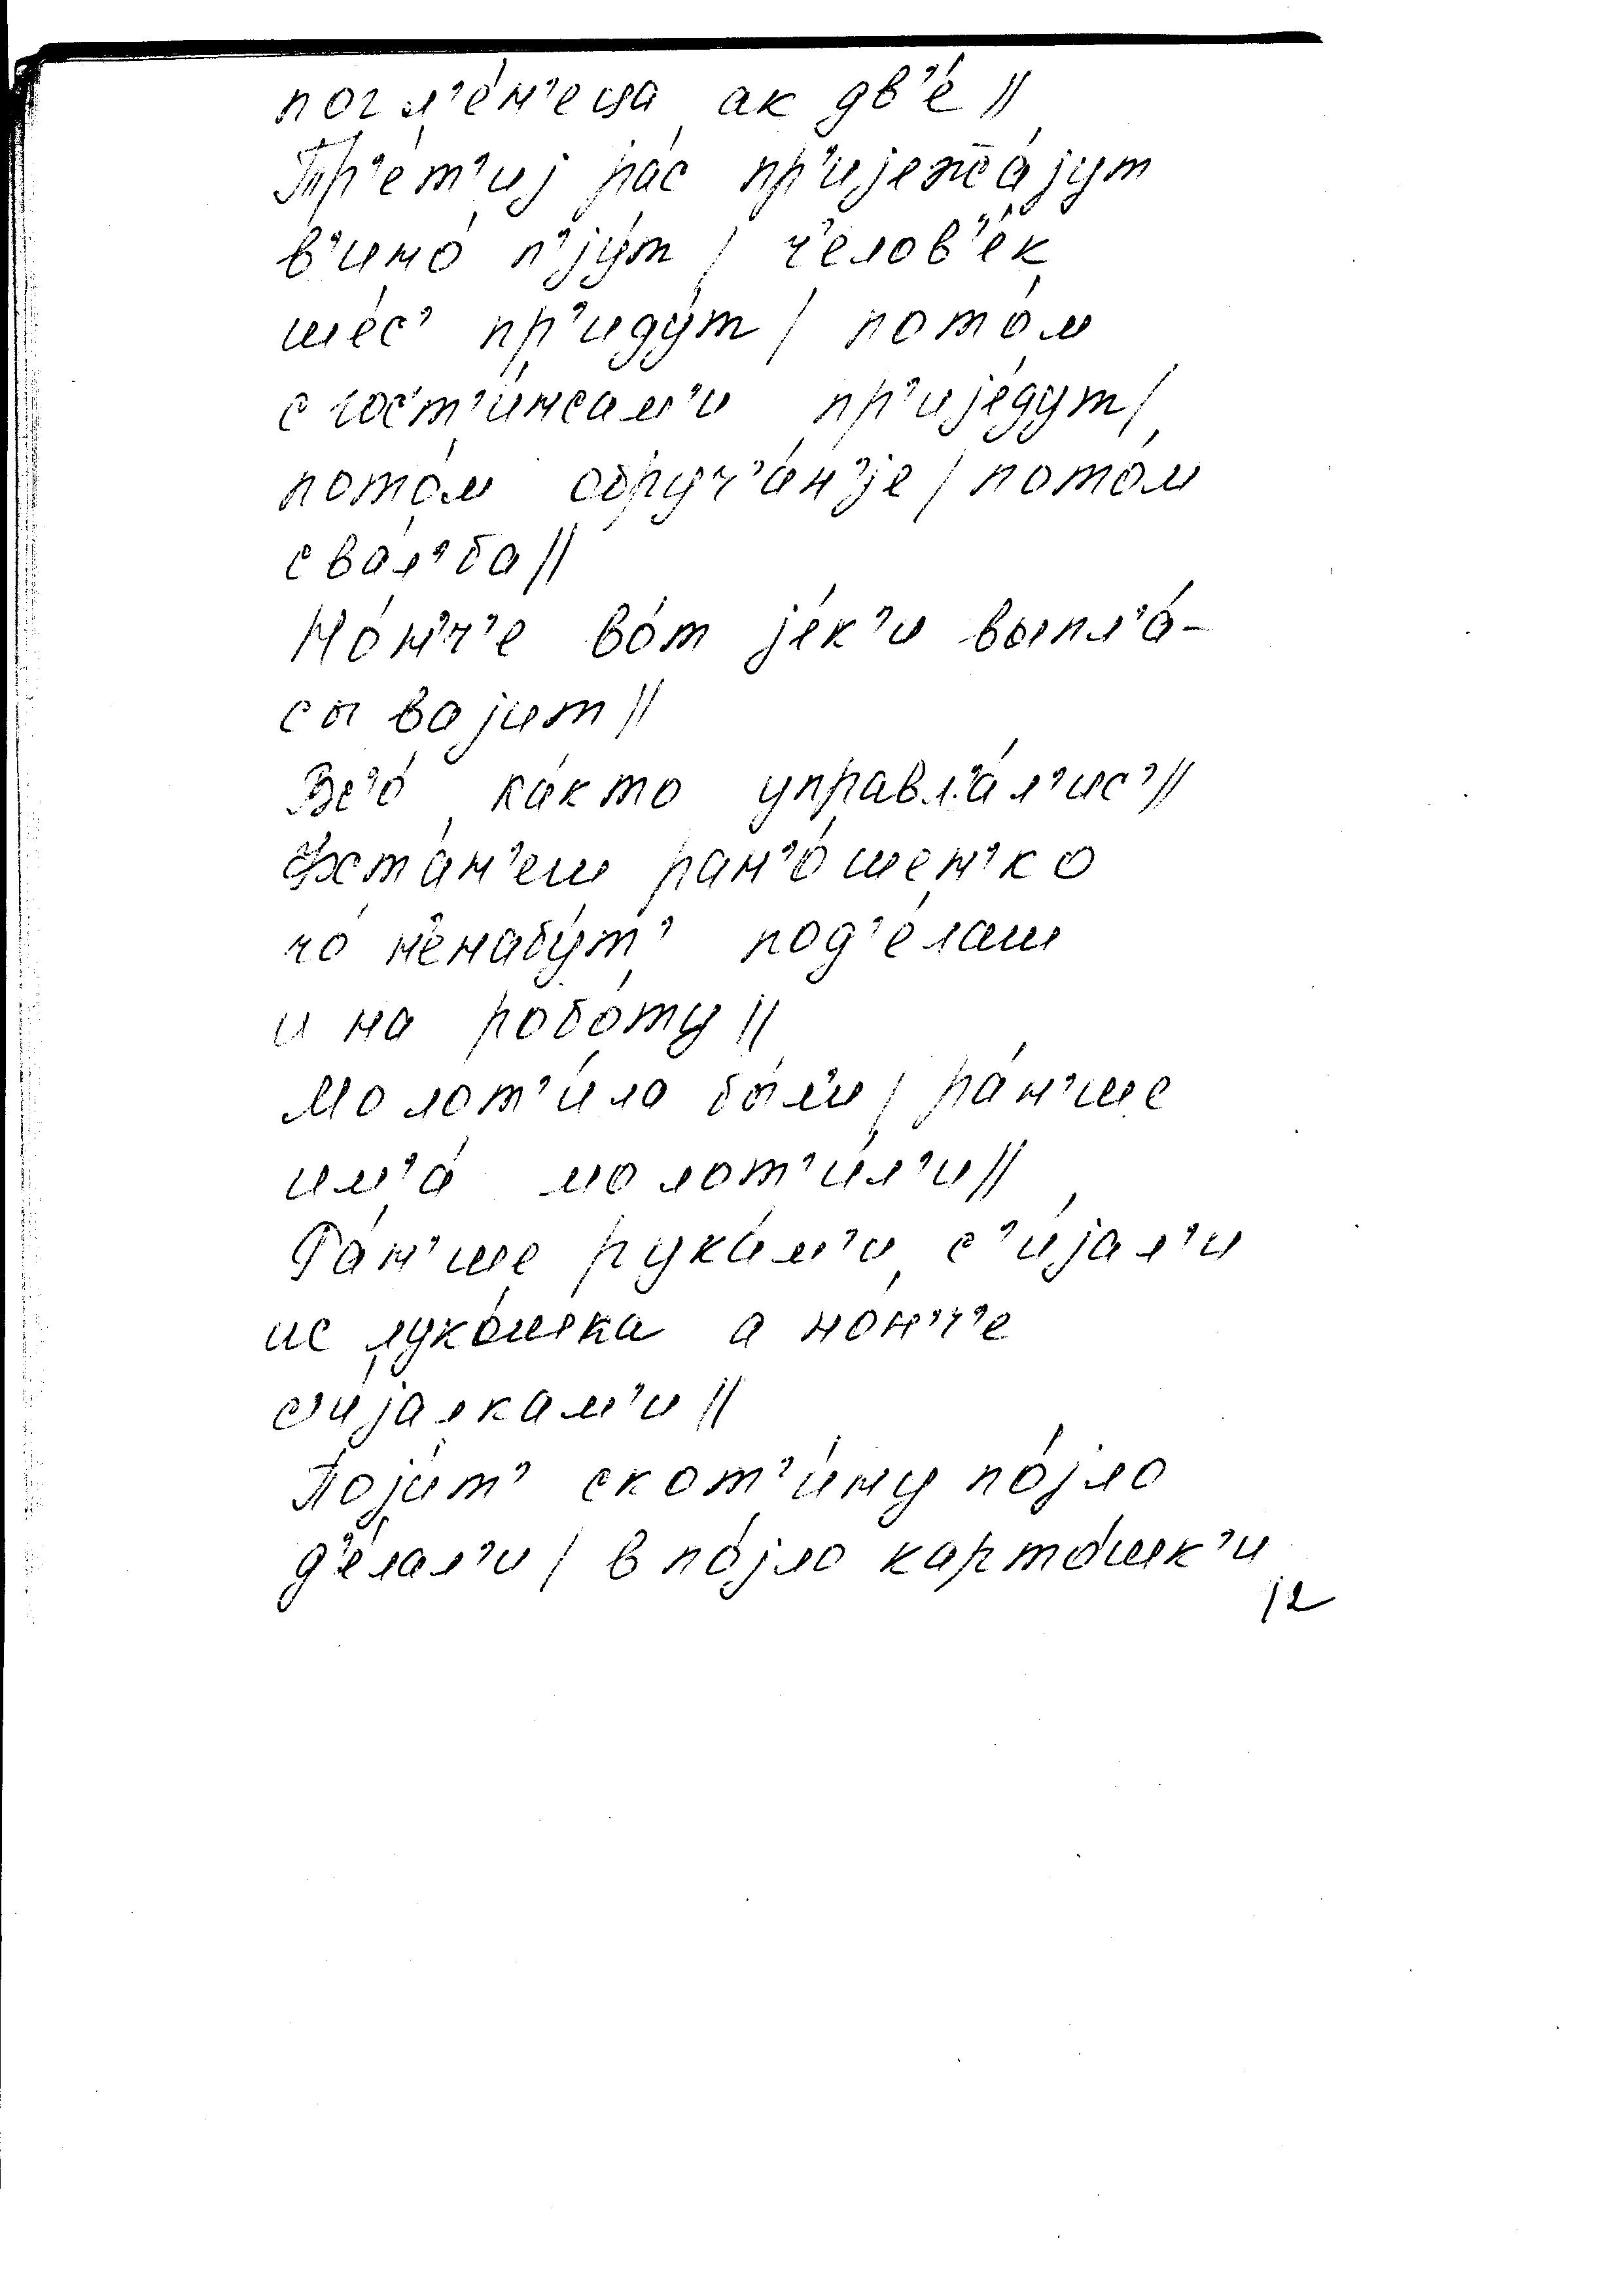 погл’е́н’еца ак дв’е́ //
Тр’е́т’иj ра́с пр’иjежа́jут
в’ино́ п’jу́т / ч’елов’е́к
ше́с’ пр’иду́т / пото́м
с гос’т’и́нсам’и пр’иjе́дут /
пото́м обруч’а́н’jе / пото́м
сва́л’ба //
Но́н’ч’е во́т jе́к’и выпл’а́-
сывајит //
Вс’о́ ка́кто управл’а́л’ис’ //
Фста́н’еш ран’о́шен’ко
чо́ н’енабу́т’ под’е́лаш
и на робо́ту //
Молот’и́ла бы́л’и / ра́н’ше
им’а́ молот’и́л’и //
Ра́н’ше рука́м’и с’и́jал’и
ис луко́шка а но́н’ч’е
с’и́jалкам’и //
Поjи́т’ скот’и́ну по́jло
д’е́лал’и / в по́jло карто́шк’и
12